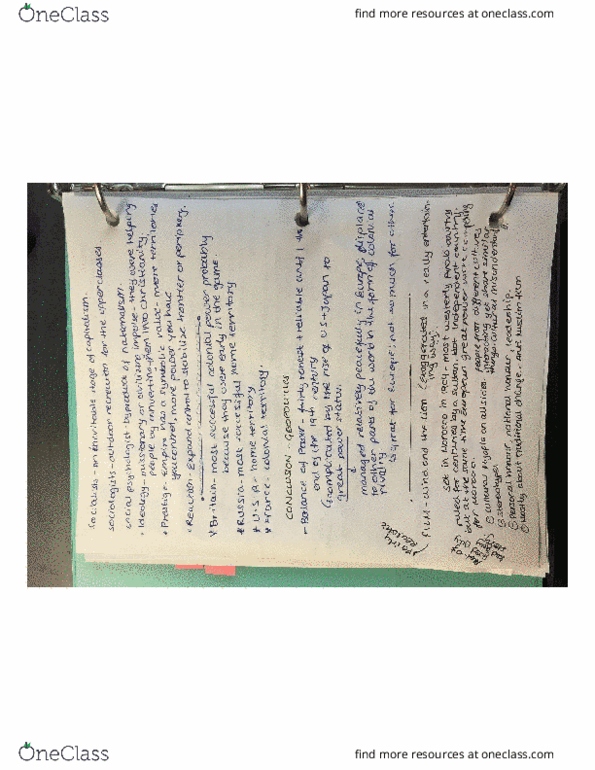 OneClass
find more resources at oneclass.com
Socialists - an inevitable stage of capitalism.
sociologists - outdoor recreation for the upperclasses
social psychologist - byproduct of nationalism.
• Ideology - missionary or civilizing impulse - they were helping
people by converting them into christianity.
• Prestige - Empire has a symbolic value - more territories
you control, more power you have
• Reaction - Expand control to stabilise frontier or periphery.
* Britain - most successful colonial power probably
because they were early in the game.
* Russia - most successful home territory
* U.S.A - home territory
* France - colonial territory
CONCLUSION - GEOPOLITICS
- Balance of Power - fairly robust + reliable until the
end of the 19th century
complicated by the rise of US + Japan to
great power status.
managed relatively peacefully in Europe, displaced
to other parts of the world in the form of colonial
rivalry
great for Europe, not so much for others.
FILM - Wind and the Lion (exaggerated in a really entertain-
ing way).
set in Morocco in 1904 - most westerly
ruled for centuries by a sultan, independent country,
but at the same time European great powers were competing
for Morocco.
① cultural on all sides
people from different cultures
interacting get share similar
things. cultural misunderstanding
② stereotypes
③ personal honour, national honour, leadership.
④ about traditional
OneClass
find more resources at oneclass.com